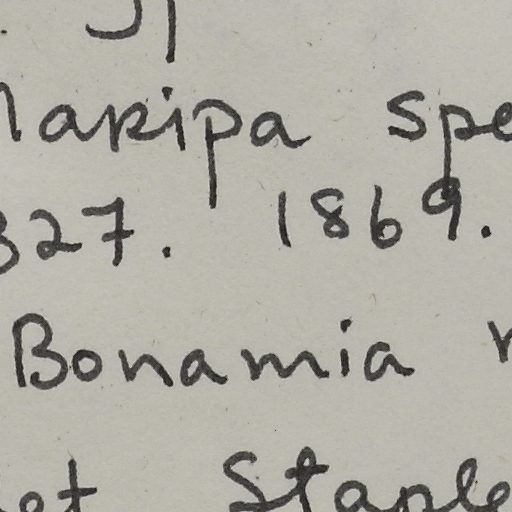 Maripa spe
327. 1869.
Bonamia
et Staple